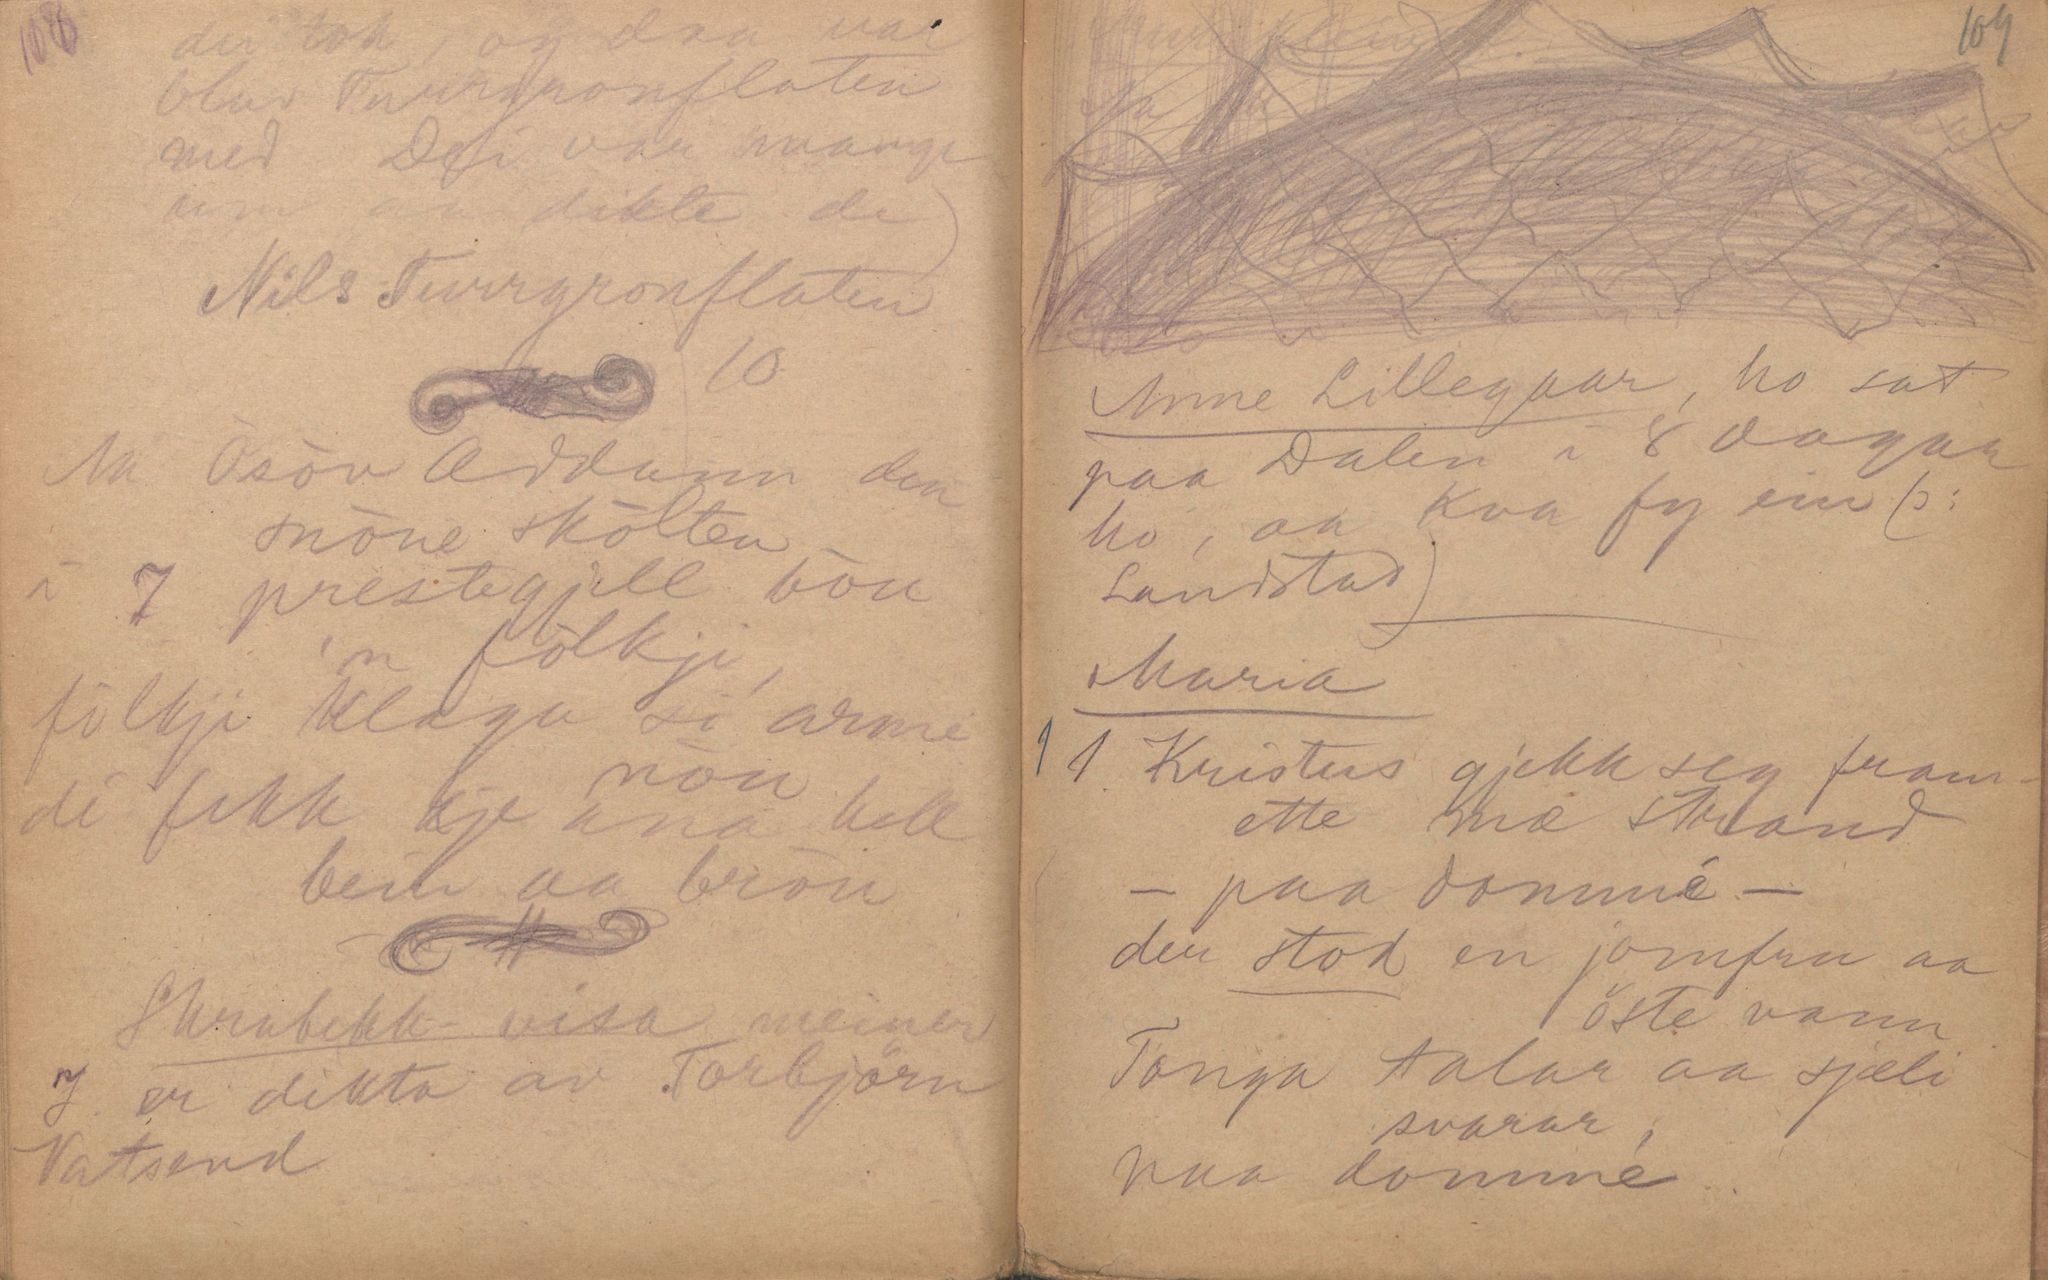 108
dei tok, og daa var
blei Turrgronflaten
med Dei var mange
um aa dikte de)
Nils Turrgronflaten
10
Aa Ösöv Addunn den
snöne skölten
i 7 prestegjell bön
'n fölkji,
fölkji klaga si arme
nöu
di fekk kje ana hell
bein aa bröu
Skrabekk-visa meiner
J. er dikta av Torbjörn
Vatsend
109
Anne Lillegaar, ho sat
paa Dalen i 8 dagar
ho, aa kva fy ein (ɔ:
Landstad)
Maria
1 1 Kristus gjekk seg fram-
ette mæ strand
— paa dommé —
der stod en jomfru aa
öste vann
Tonga talar aa sjæli
svarar,
paa dommé